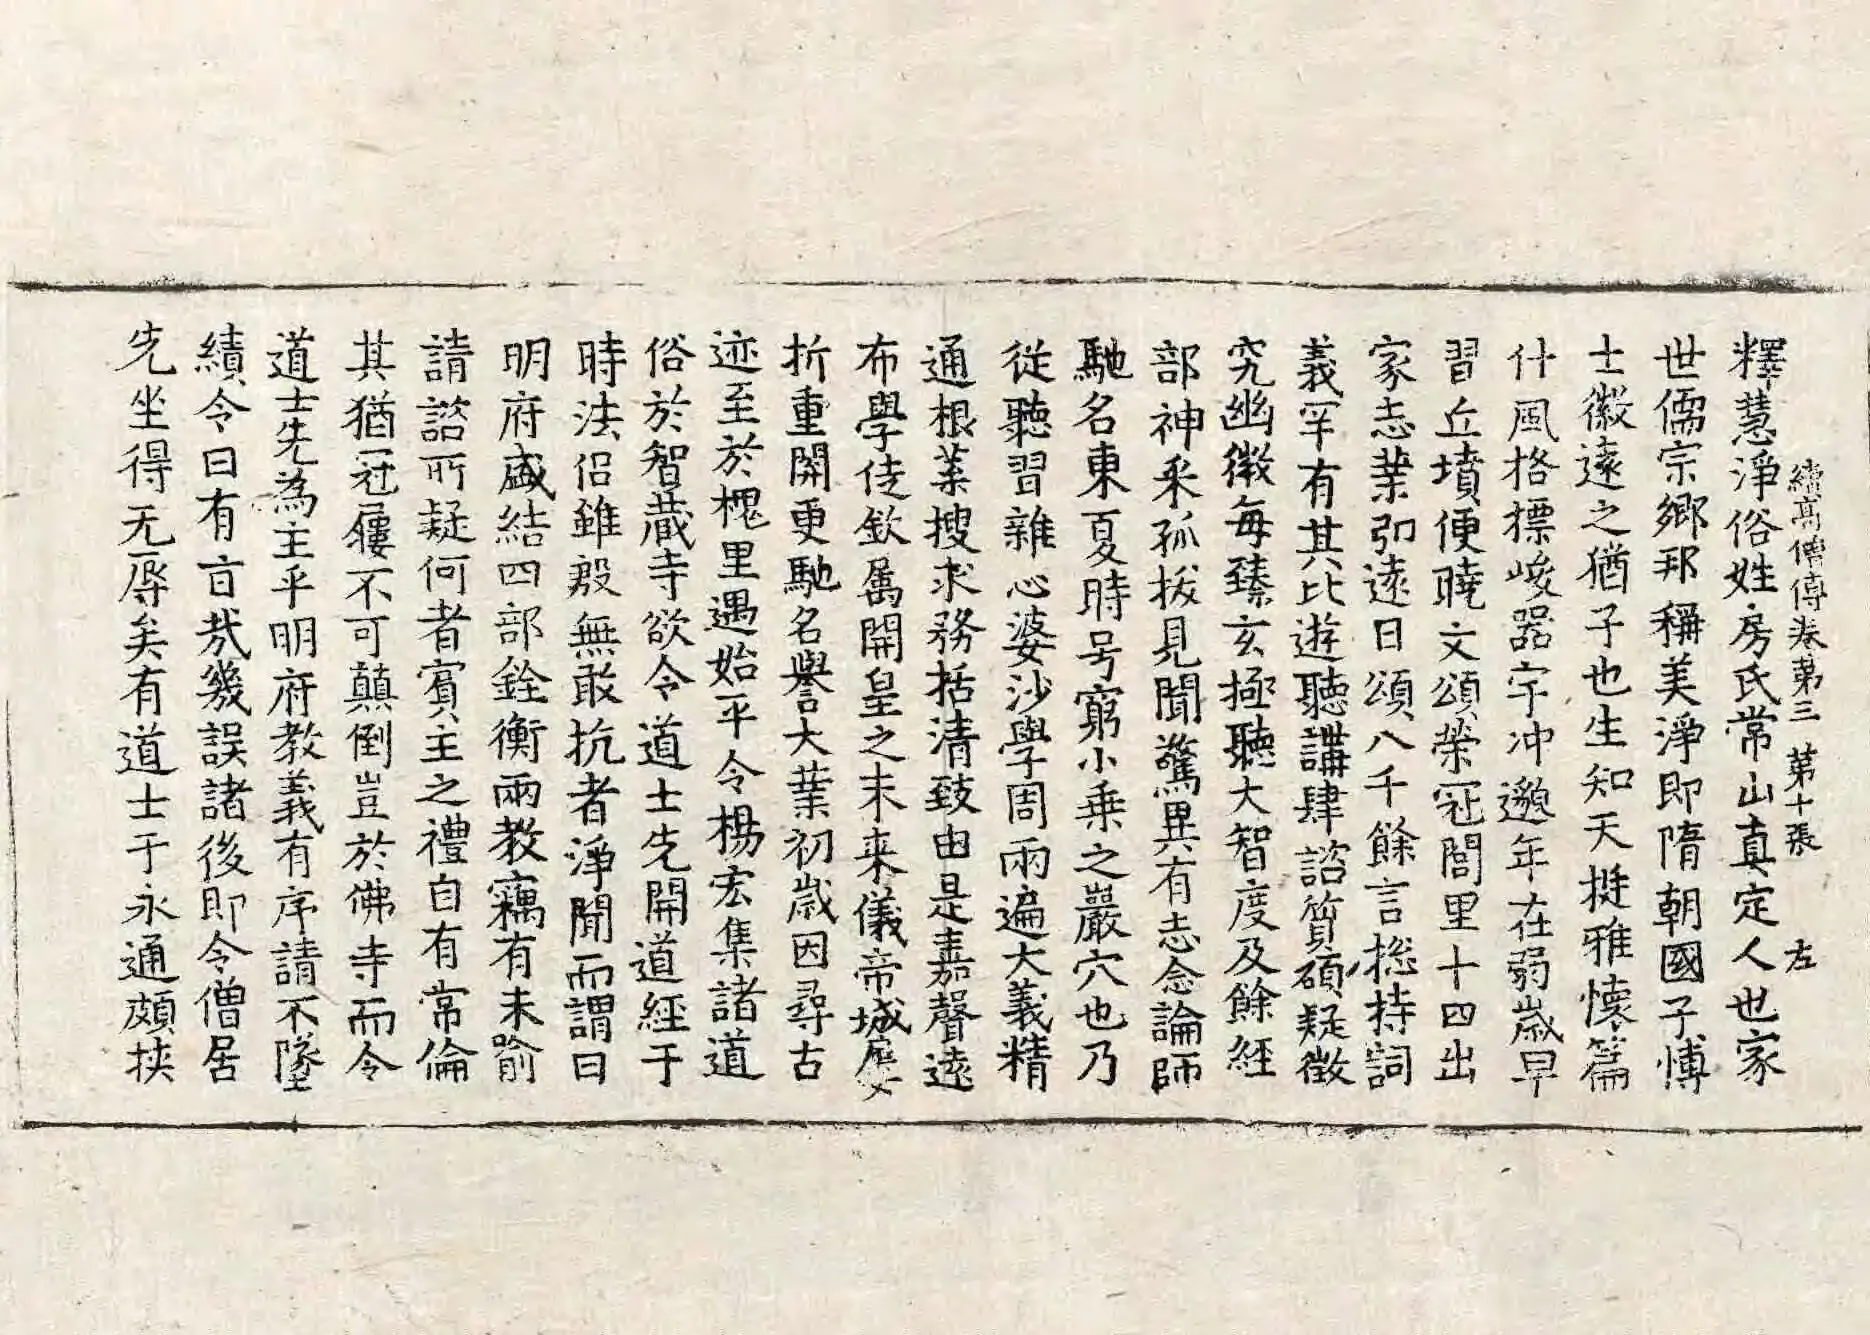 續高僧傳卷第三 第十張 左
釋慧淨俗姓房氏常山真定人也家
世儒宗鄉邦稱美淨即隋朝國子博
士徽遠之猶子也生知天挺雅懷篇
什風格標峻器宇冲邈年在弱歲早
習丘墳便曉文頌榮冠閭里十四出
家志業弘遠日頌八千餘言揔持詞
義罕有其比遊聽講肆諮質碩疑徵
究幽微每臻玄極聽大智度及餘經
部神采孤拔見聞驚異有志念論師
馳名東夏時号窮小乘之巖穴也乃
從聽習雜心婆沙學周兩遍大義精
通根葉搜求務括清致由是嘉聲遠
布學徒欽屬開皇之末来儀帝城屢
折重開更馳名譽大業初歲因尋古
迹至於槐里遇始平令楊宏集諸道
俗於智藏寺欲令道士先開道經于
時法侣雖殷無敢抗者淨聞而謂曰
明府盛結四部銓衡兩教竊有未喻
請諮所疑何者賓主之禮自有常倫
其猶冠屨不可顛倒豈於佛寺而令
道士先為主乎明府教義有序請不墜
績令曰有旨哉幾誤諸後即令僧居
先坐得无辱矣有道士于永通頗挾